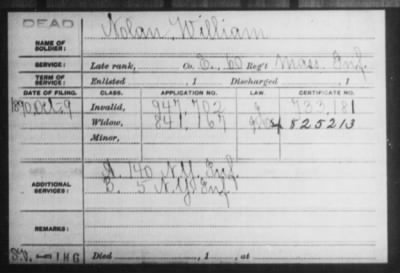 DEAD
NAME OF SOLDIER: Nolan William
SERVICE: Late rank, Co. E, 60 Reg't Mass. Inf.
TERM OF SERVICE: Enlisted , 1 Discharged , 1
DATE OF FILING. CLASS. APPLICATION NO. LAW. CERTIFICATE NO.
1890 Oct 9 Invalid, 947,702 733,181
Widow, 841,767 825213
Minor,
ADDITIONAL SERVICES: A. 140 N.Y. Inf.
B. 5 N.Y. Inf
REMARKS:
Died , 1 , at